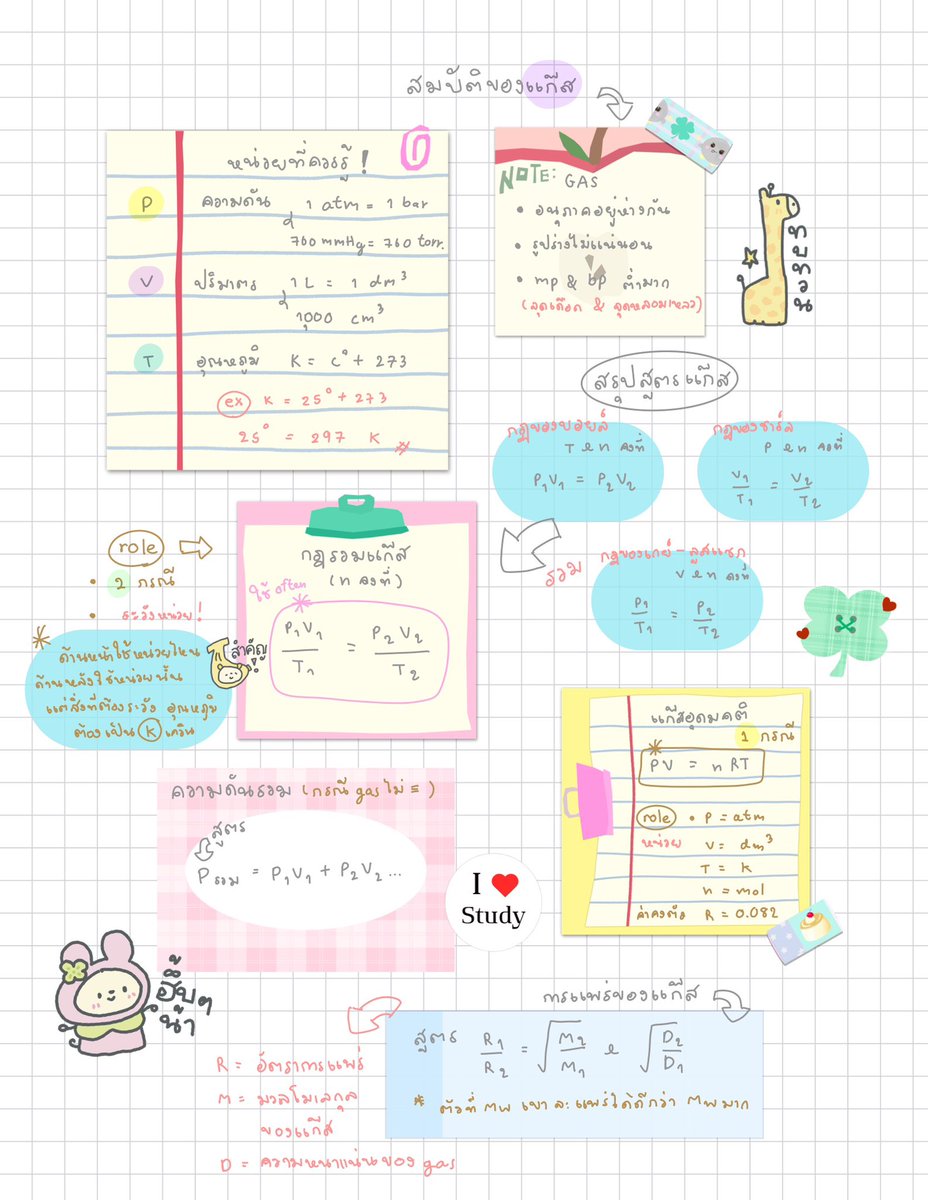 สมบัติของแก๊ส
หน่วยที่ควรรู้!
P ความดัน 1 atm = 1 bar
760 mmHg = 760 torr.
V ปริมาตร 1 L = 1 dm³
1,000 cm³
T อุณหภูมิ K = c° + 273
ex K = 25° + 273
25° = 297 K
NOTE: GAS
• อนุภาคอยู่ห่างกัน
• รูปร่างไม่แน่นอน
• mp & bp ต่ำมาก
(จุดเดือด & จุดหลอมเหลว)
สรุปสูตรแก๊ส
กฎของบอยล์
T & n คงที่
P₁V₁ = P₂V₂
กฎของชาร์ล
P & n คงที่
V₁/T₁ = V₂/T₂
รวม
กฎของเกย์-ลูสแซก
V & n คงที่
P₁/T₁ = P₂/T₂
role
• 2 กรณี
• ระวังหน่วย!
* ด้านหน้าใช้หน่วยไหน
ด้านหลังใช้หน่วยนั้น
แต่สิ่งที่ต้องระวัง อุณหภูมิ
ต้องเป็น K เควิน
กฎรวมแก๊ส
(n คงที่)
ใช้ often
P₁V₁/T₁ = P₂V₂/T₂
สำคัญ
แก๊สอุดมคติ
1 กรณี
* PV = nRT
role • P = atm
หน่วย V = dm³
T = K
n = mol
ค่าคงตัว R = 0.082
ความดันรวม (กรณี gas ไม่ ≡ )
สูตร
P รวม = P₁V₁ + P₂V₂...
I ❤ Study
ฮึ้บๆ
น้า
การแพร่ของแก๊ส
สูตร R₁/R₂ = √M₂/M₁ & √D₂/D₁
* ตัวที่ Mw เบาจะแพร่ได้ดีกว่า Mw มาก
R = อัตราการแพร่
M = มวลโมเลกุล
ของแก๊ส
D = ความหนาแน่นของ gas